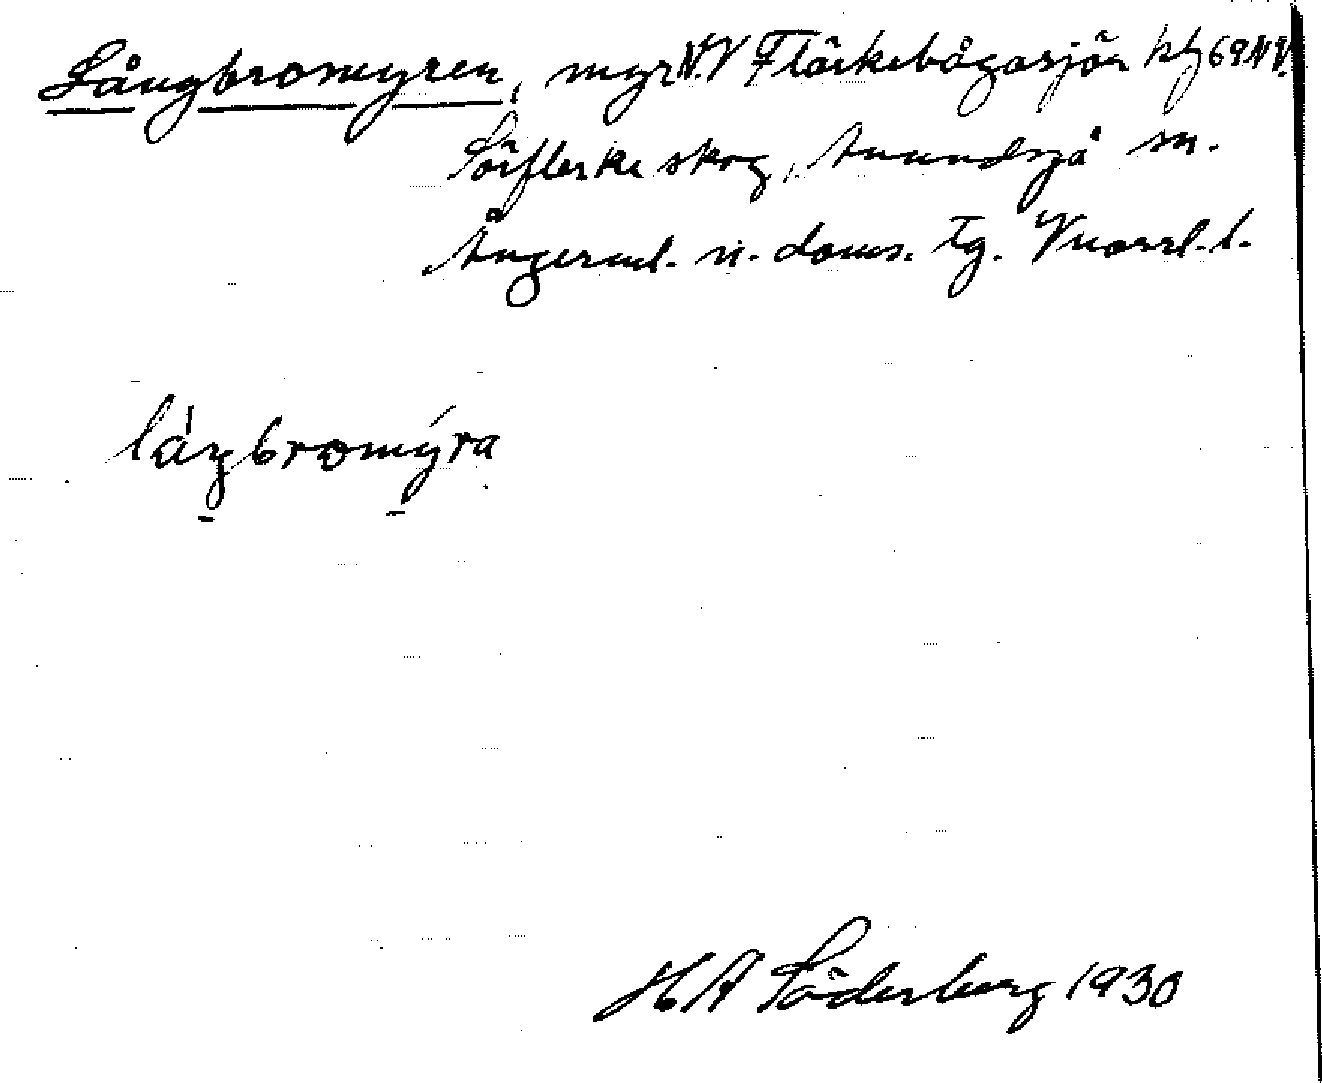 Långbromyren, myr N.V Flärkebågasjön kbl 69 NV.
Sörflärke skog, Anundsjö sn.
Ångerml. n. doms. Tg. Vnorrl. l.
låŋbromýra
H A Söderberg 1930